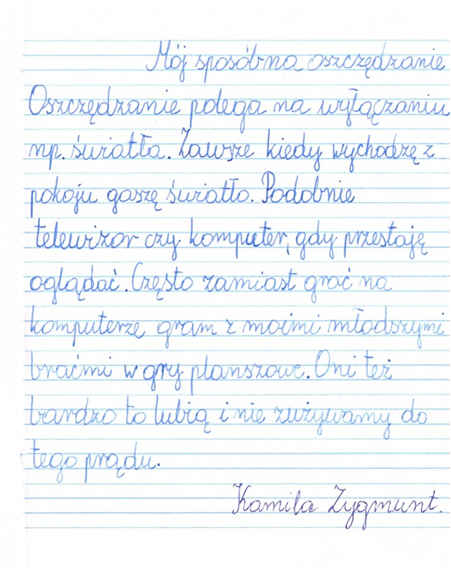 Mój sposób na oszczędzanie
Oszczędzanie polega na wyłączaniu
np. światła. Zawsze kiedy wychodzę z
pokoju gaszę światło. Podobnie
telewizor czy komputer, gdy przestaję
oglądać. Często zamiast grać na
komputerze gram z moimi młodszymi
braćmi w gry planszowe. Oni też
bardzo to lubią i nie zużywamy do
tego prądu.
Kamila Zygmunt.